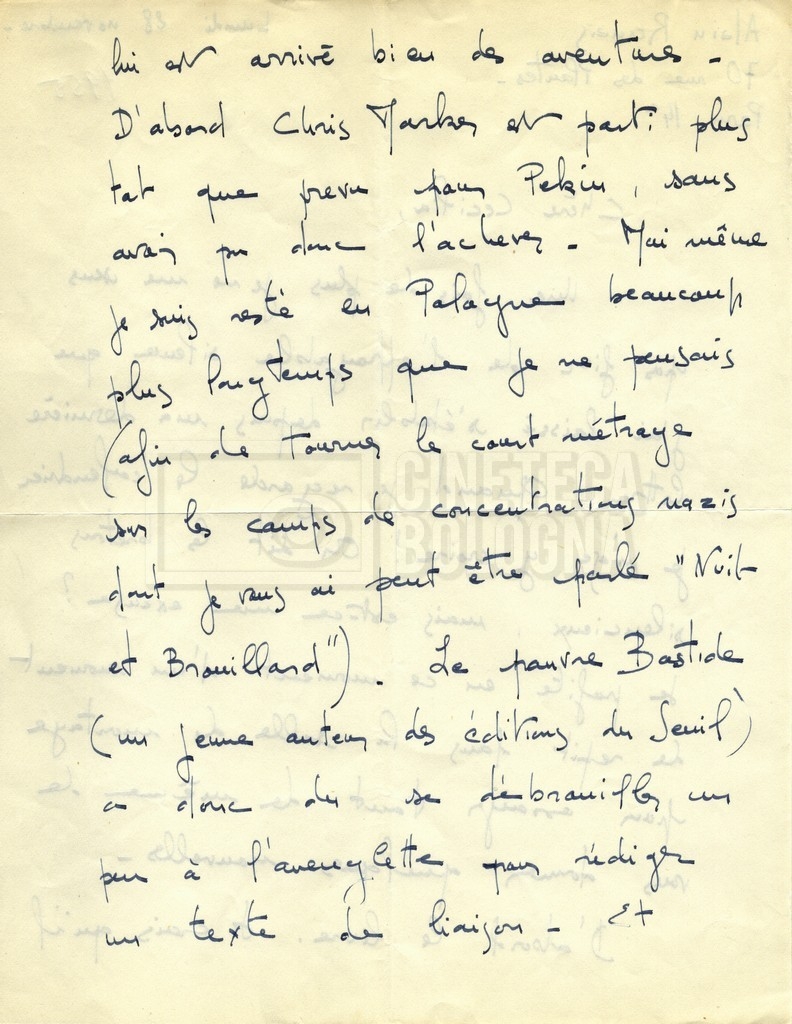 lui est arrivé bien des aventures -
D'abord Chris Marker est parti plus
tot que prevu pour Pekin, sans
avoir pu donc l'achever - Moi même
je suis resté en Pologne beaucoup
plus longtemps que je ne pensais
(afin de tourner le court métrage
sur les camps de concentrations nazis
dont je vous ai peut être parlé "Nuit
et Brouillard"). Le pauvre Bastide
(un jeune auteur des éditions du Seuil)
a donc du se débrouiller un
peu à l'aveuglette pour rédiger
un texte de liaison - Et
CINETECA
BOLOGNA